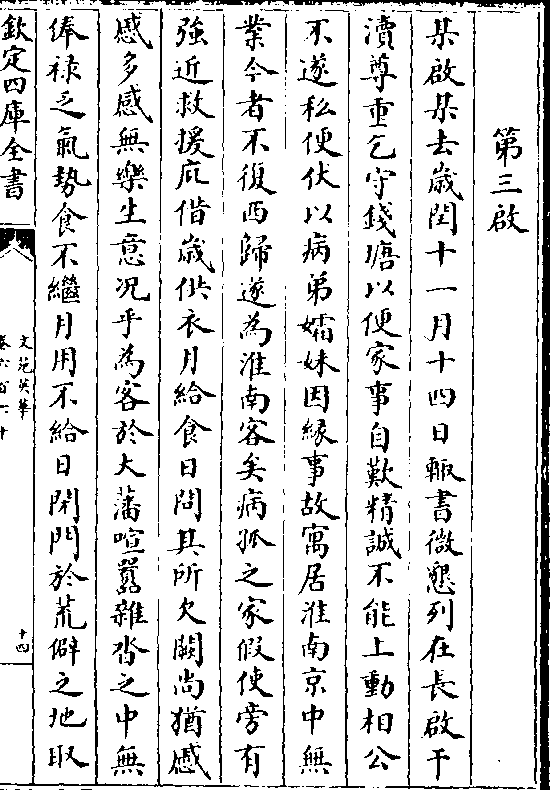 第三啟
某啟某去歲閏十一月十四日輙書微懇列在長啟干
瀆尊重乞守錢塘以便家事自歎精誠不能上動相公
不遂私便伏以病弟孀妹因緣事故寓居淮南京中無
業今者不復西歸遂為淮南客矣病孤之家假使旁有
強近救援庇借歲供衣月給食日問其所欠闕尚猶慼
慼多感無樂生意况乎為客於大藩喧囂雜沓之中無
俸禄乏氣勢食不繼月用不給日閉門於荒僻之地取
欽定四庫全書
文苑英華
卷六百六十
十四